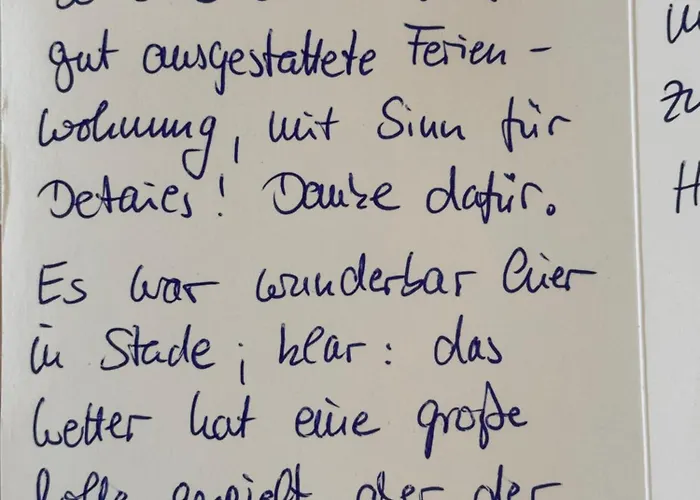 gut ausgestattete Ferien-
wohnung, mit Sinn für
Detaies! Danke dafür.
Es war wunderbar hier
in Stade; klar: das
Wetter hat eine große
Rolle gespielt aber der
zu
H